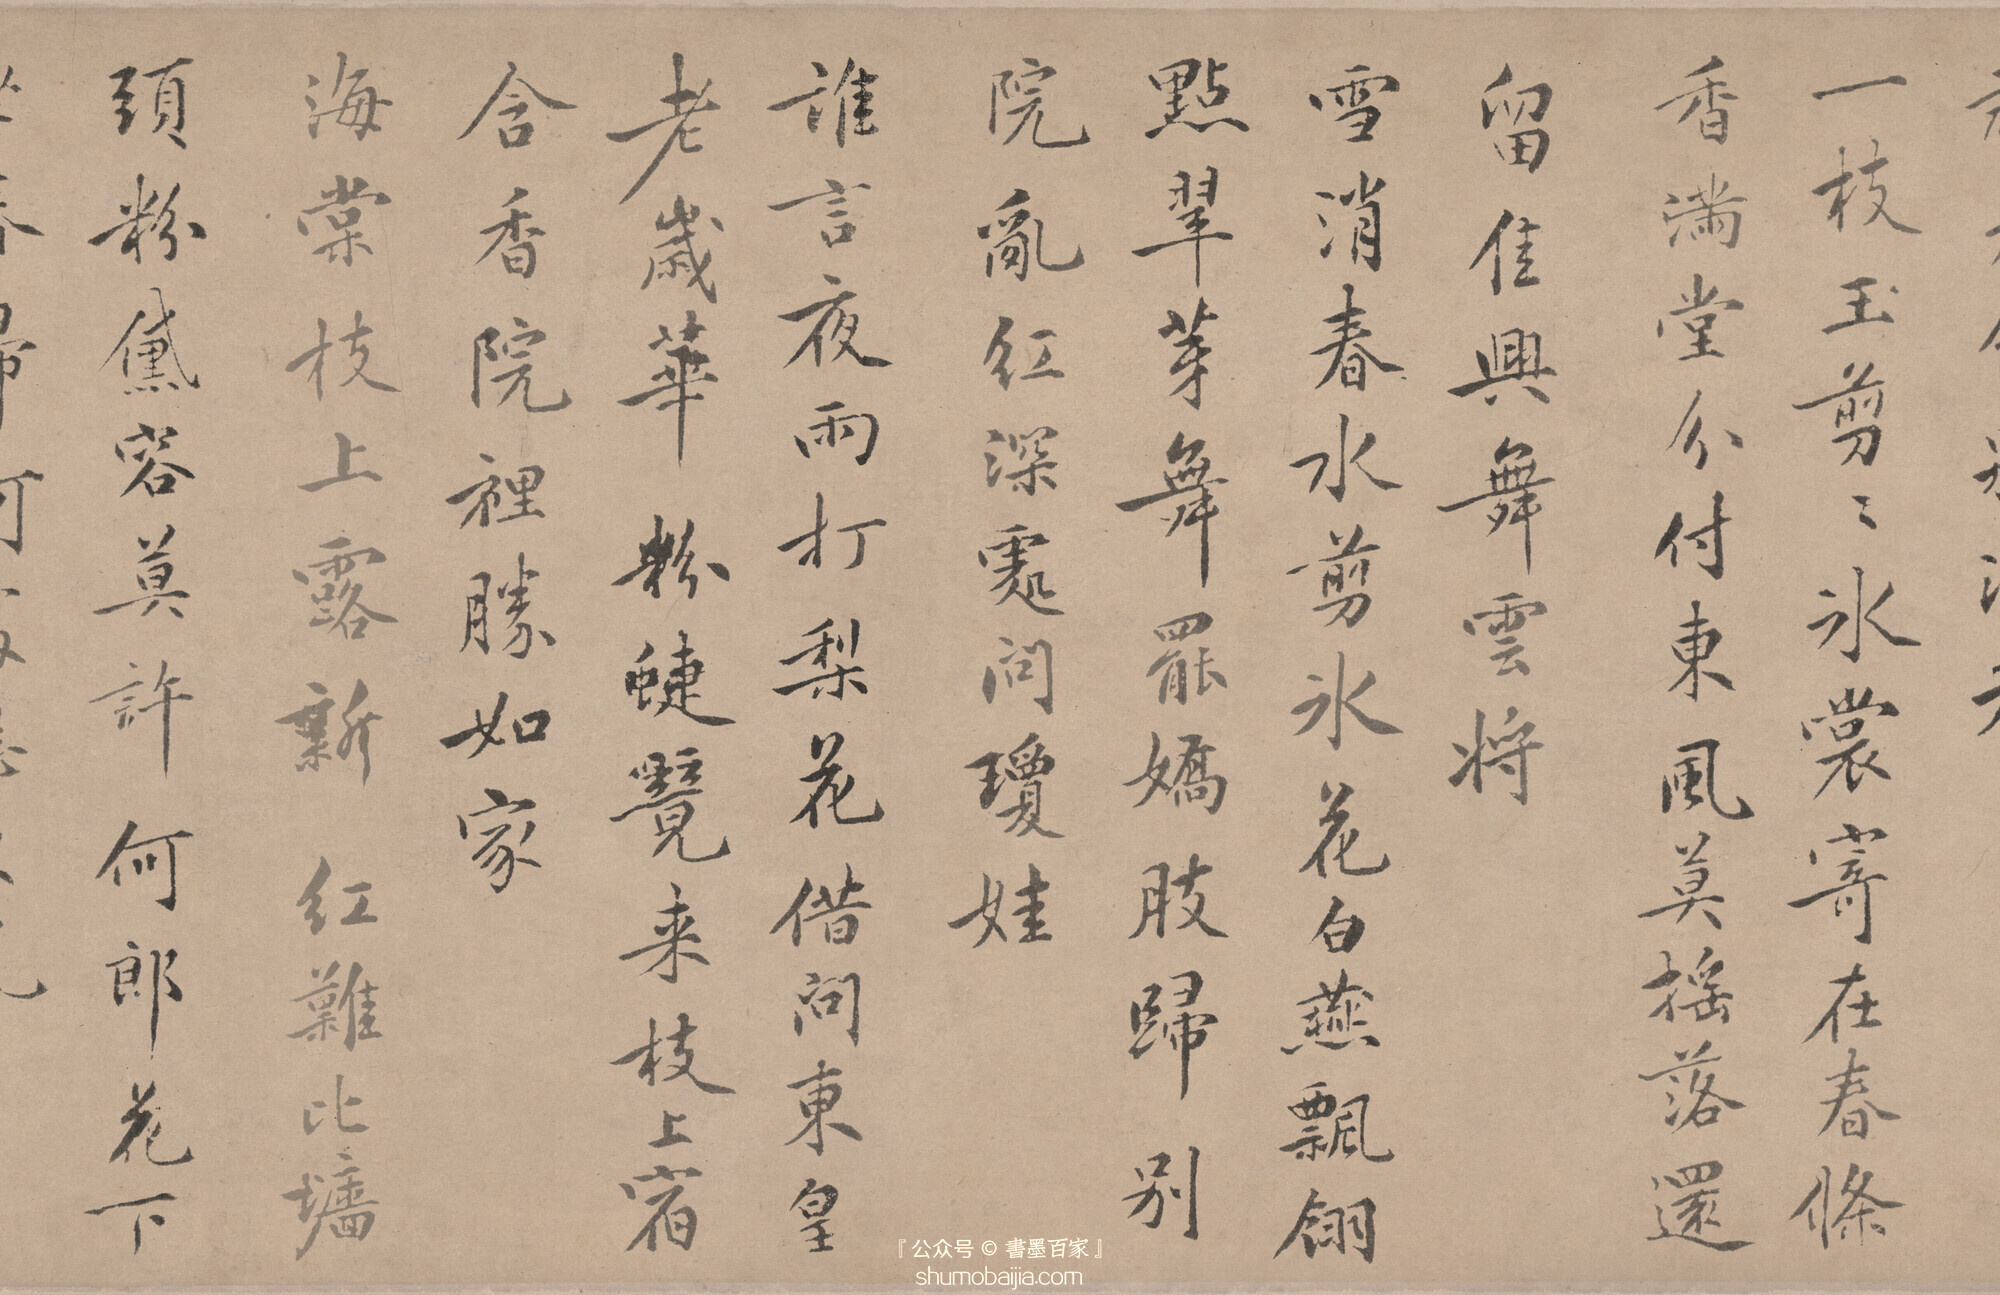 一枝玉剪〻氷裳寄在春條
香滿堂分付東風莫摇落還
留佳興舞雲将
雪消春水剪氷花白燕飄翎
點翠芽舞罷嬌肢歸别
院亂紅深處问瓊娃
誰言夜雨打梨花借问東皇
老歲華粉蜨覽来枝上宿
含香院裡勝如家
海棠枝上露新红難比墻
頭粉黛容莫許何郎花下
『公众号 © 書墨百家』
shumobaijia.com